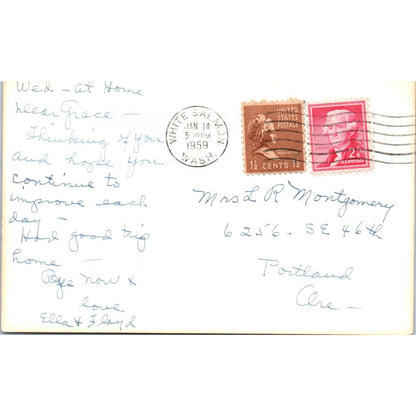 Wed - at Home
Dear Grace -
Thinking of you
and hope you
continue to
improve each
day -
Had good trip
home -
Bye now &
love
Ella & Floyd
WHITE SALMON
JAN 14
1959
WASH.
UNITED
STATES
POSTAGE
1½ CENTS 1½
2¢
Mrs L R Montgomery
6256 - SE 46th
Portland
Ore -